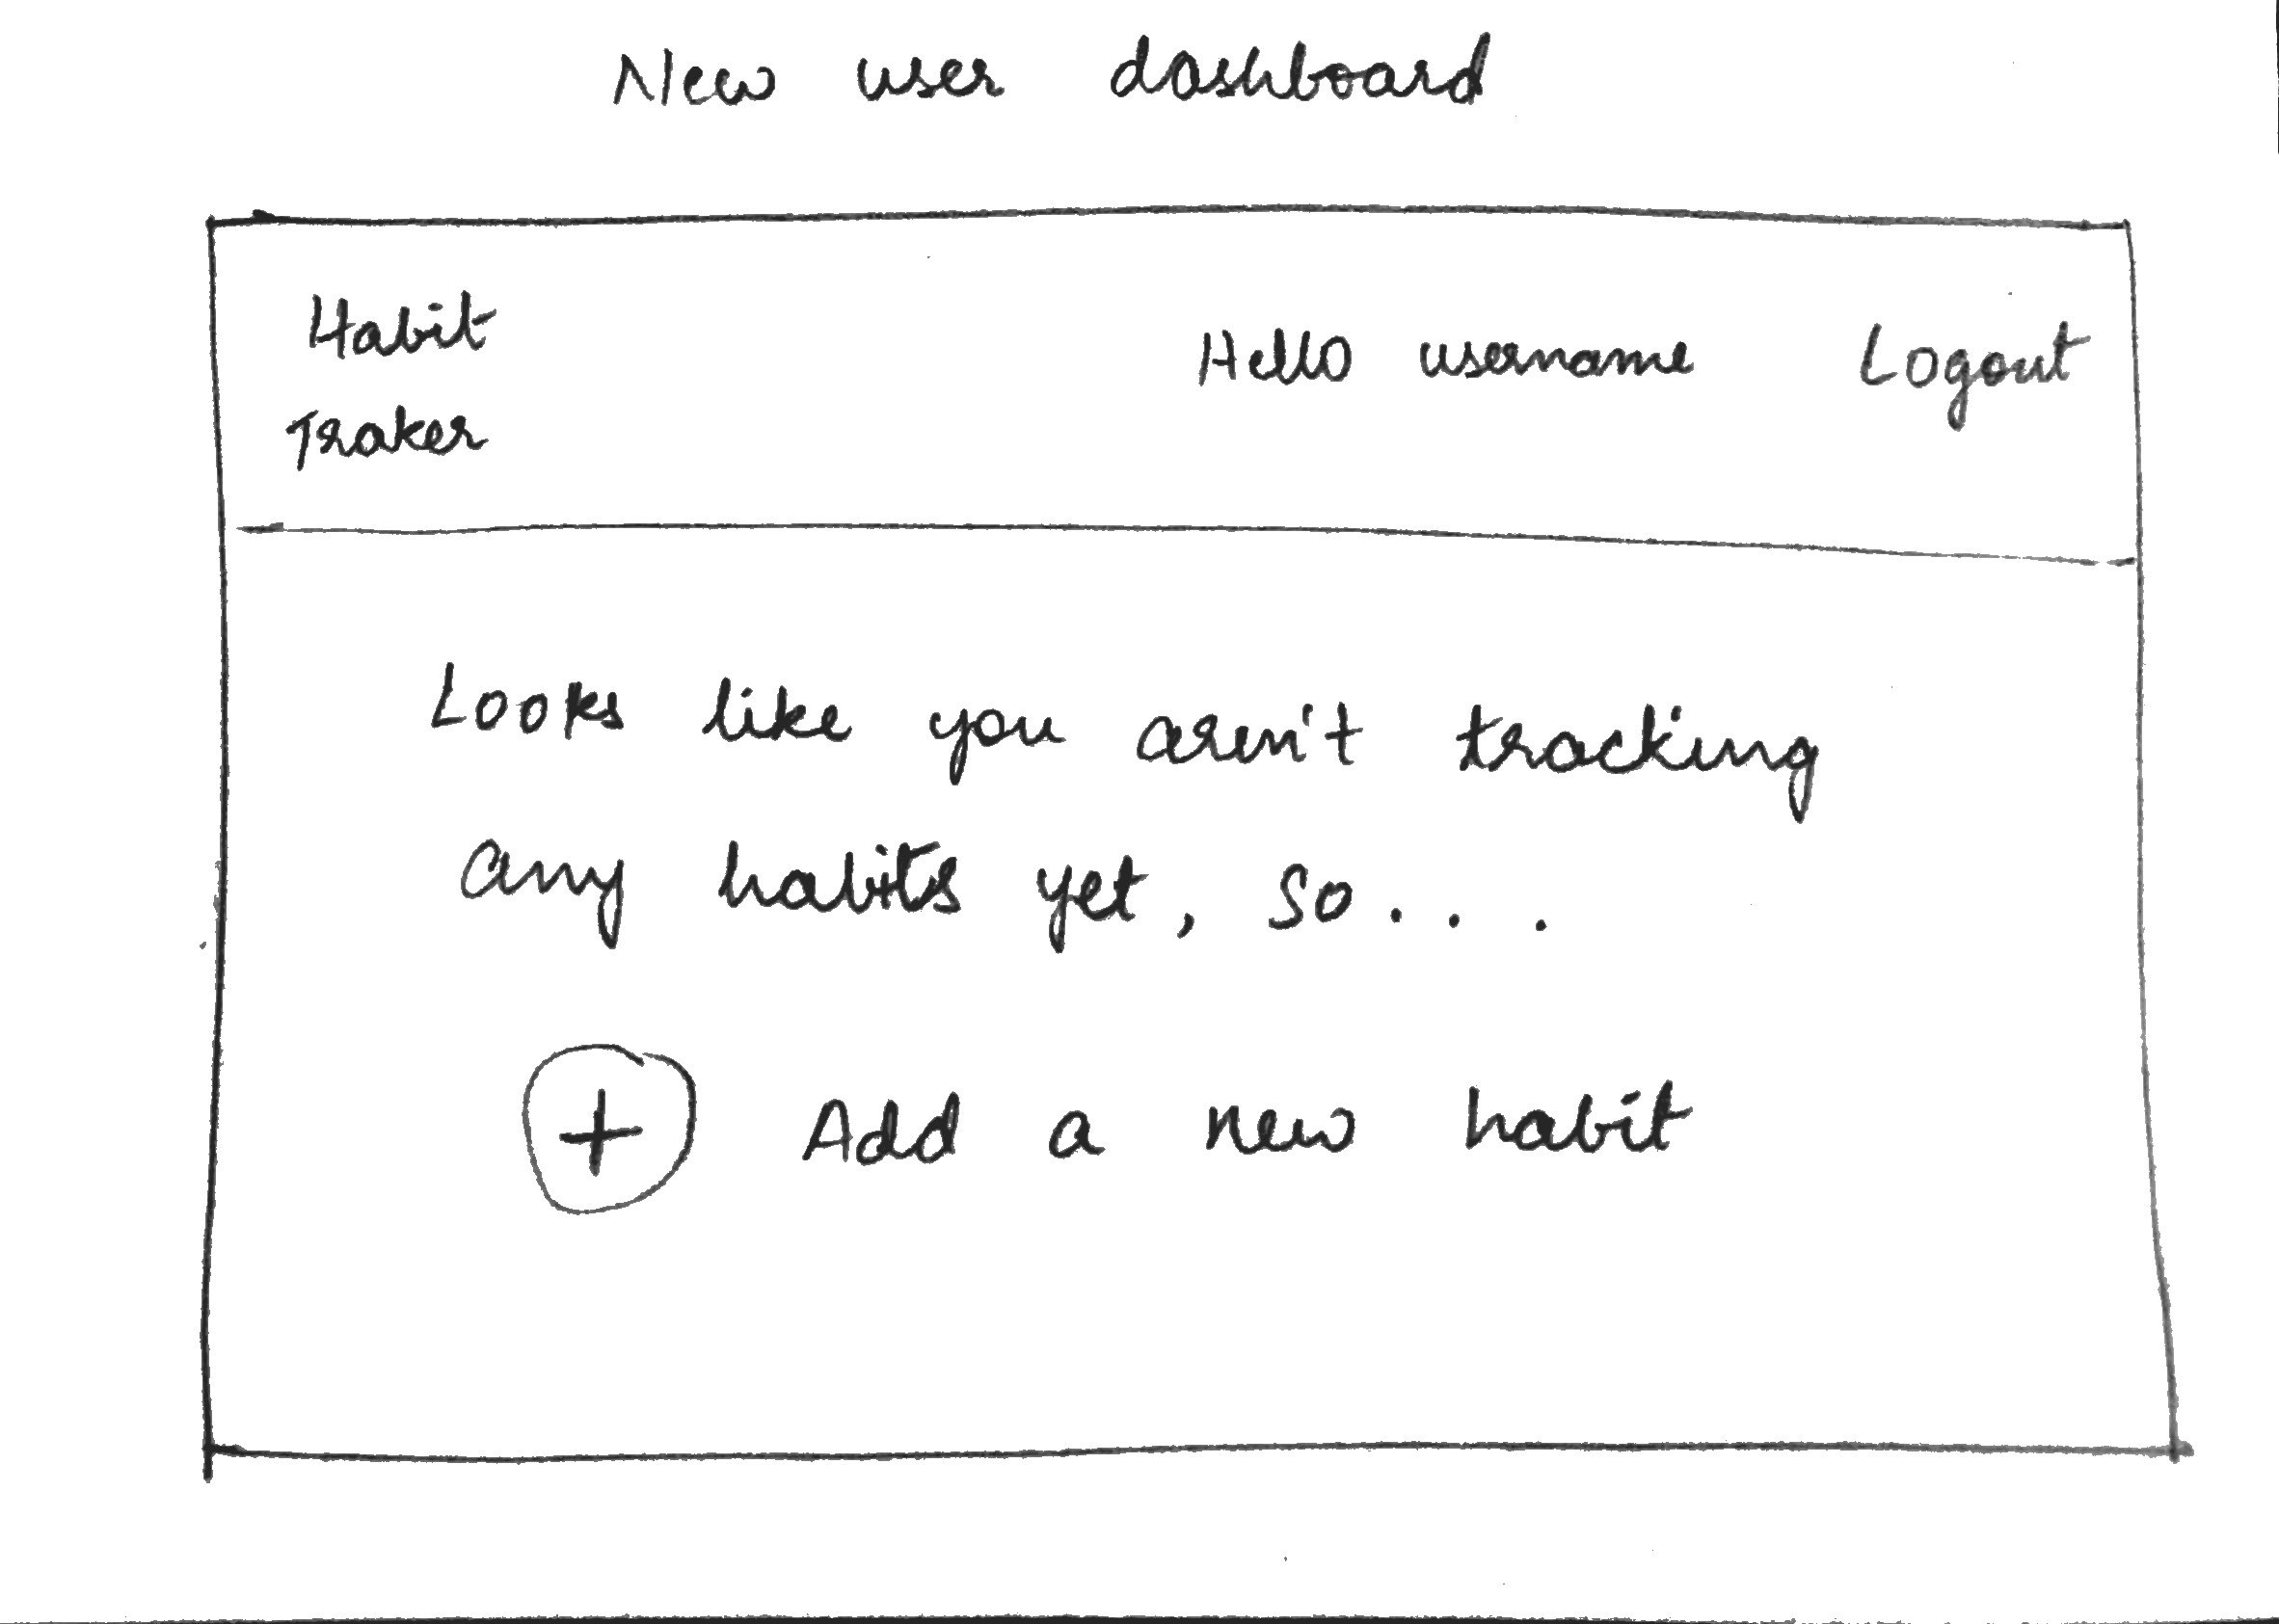 New user dashboard
Habit
Traker
Hello username Logout
Looks like you aren't tracking
any habits yet, so...
+ Add a new habit